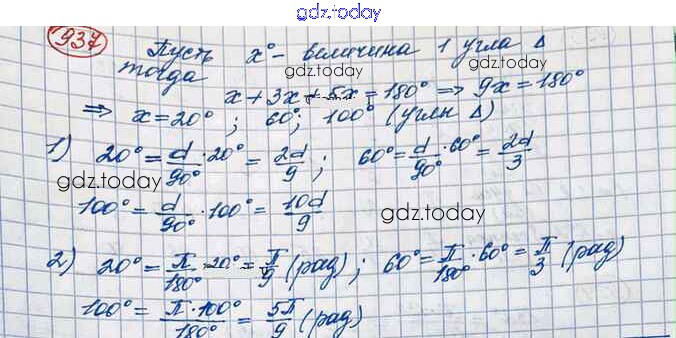 gdz.today
937 Пусть x° - величина 1 угла Δ
gdz.today
тогда
x + 3x + 5x = 180° ⇒ 9x = 180°
⇒ x = 20° ; 60° ; 100° (углы Δ)
1) 20° = d/90° · 20° = 2d/9 ; 60° = d/90° · 60° = 2d/3
gdz.today
100° = d/90° · 100° = 10d/9
gdz.today
2) 20° = π/180° · 20° = π/9 (рад) ; 60° = π/180° · 60° = π/3 (рад)
100° = π · 100°/180° = 5π/9 (рад)